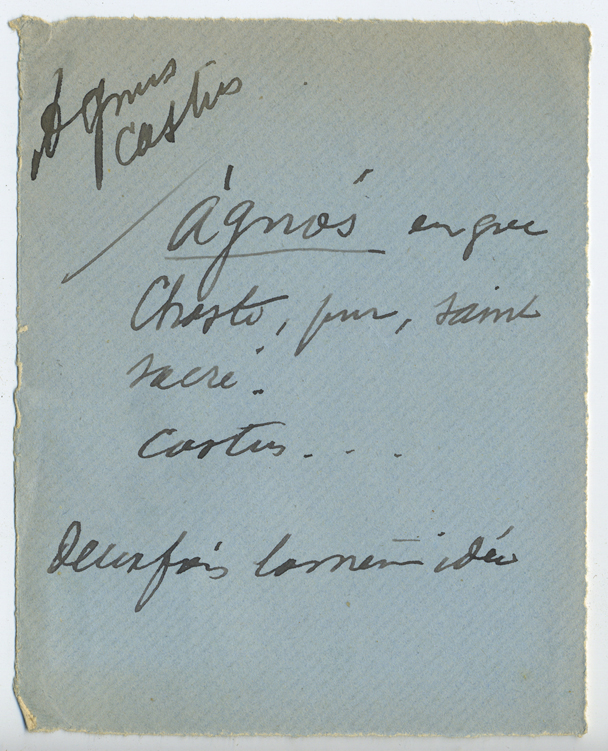 Agnus
castus
Ágnós en grec
Chaste, pur, saint
sacré.
castus. . .
Deux fois la même idée